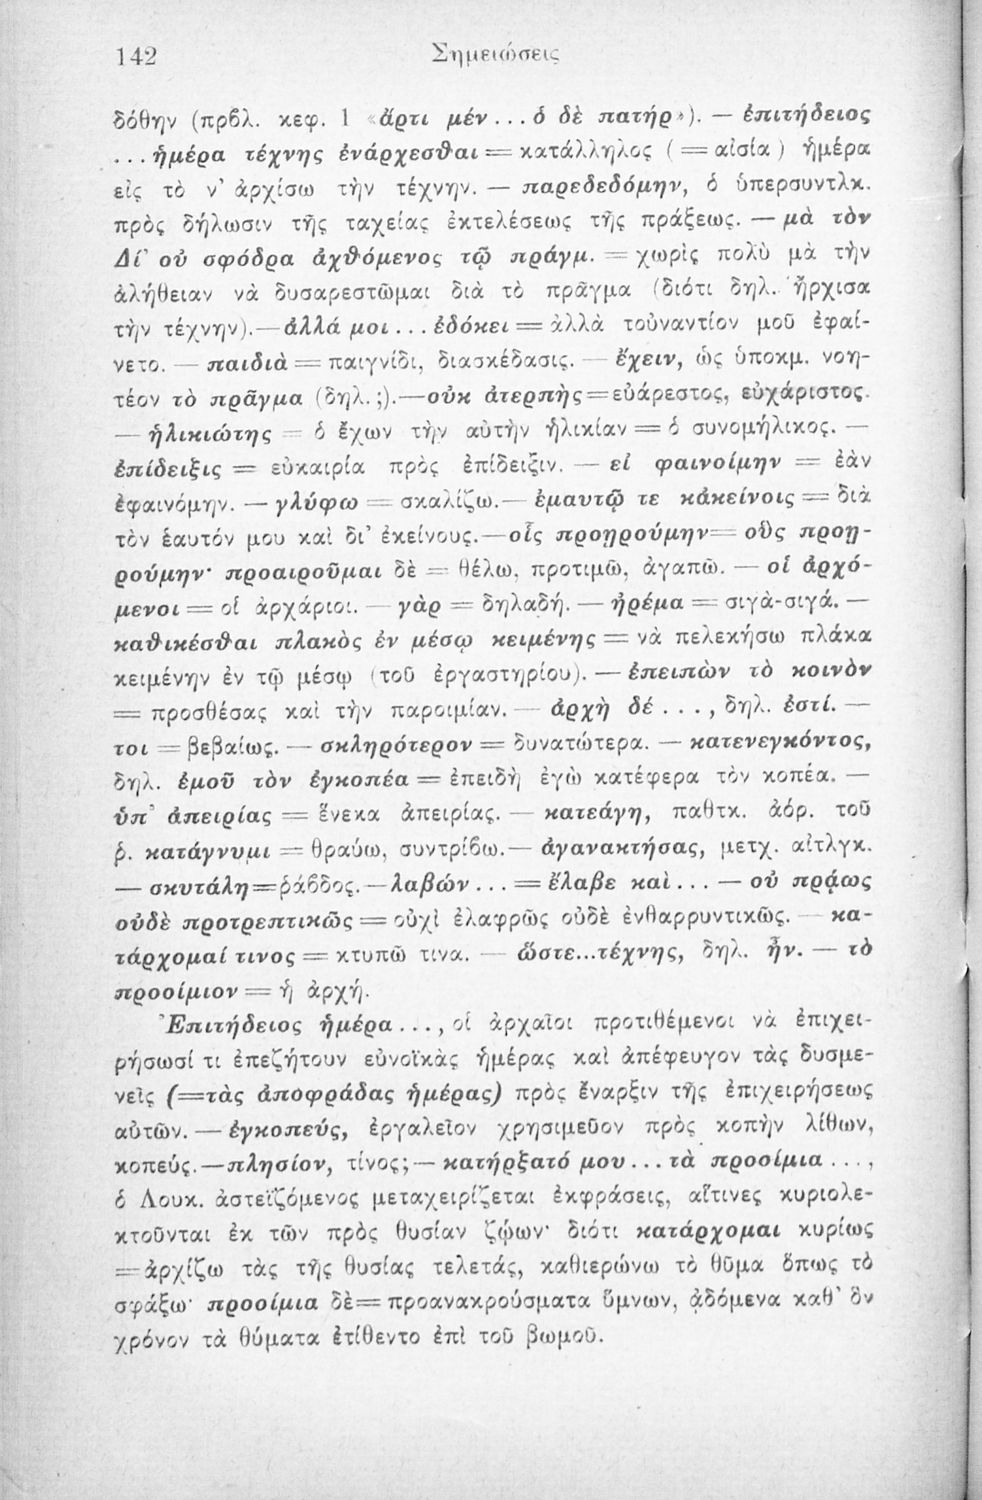 142 Σημειώσεις
δόθην (πρβλ. κεφ. 1 «ἄρτι μέν... ὁ δὲ πατήρ»). — ἐπιτήδειος
...ἡμέρα τέχνης ἐνάρχεσθαι = κατάλληλος (= αἰσία) ἡμέρα
εἰς τὸ ν’ ἀρχίσω τὴν τέχνην. — παρεδεδόμην, ὁ ὑπερσυντλκ.
πρὸς δήλωσιν τῆς ταχείας ἐκτελέσεως τῆς πράξεως. — μὰ τὸν
Δί’ οὐ σφόδρα ἀχθόμενος τῷ πράγμ. = χωρὶς πολὺ μὰ τὴν
ἀλήθειαν νὰ δυσαρεστῶμαι διὰ τὸ πρᾶγμα (διότι δηλ. ἤρχισα
τὴν τέχνην).— ἀλλά μοι... ἐδόκει = ἀλλὰ τοὐναντίον μοῦ ἐφαί-
νετο. — παιδιὰ = παιγνίδι, διασκέδασις. — ἔχειν, ὡς ὑποκμ. νοη-
τέον τὸ πρᾶγμα (δηλ. ;).—οὐκ ἀτερπὴς=εὐάρεστος, εὐχάριστος.
— ἡλικιώτης = ὁ ἔχων τὴν αὐτὴν ἡλικίαν = ὁ συνομήλικος. —
ἐπίδειξις = εὐκαιρία πρὸς ἐπίδειξιν. — εἰ φαινοίμην = ἐὰν
ἐφαινόμην. — γλύφω = σκαλίζω.— ἐμαυτῷ τε κἀκείνοις = διὰ
τὸν ἑαυτόν μου καὶ δι’ ἐκείνους.—οἷς προῃρούμην= οὓς προῃ-
ρούμην· προαιροῦμαι δὲ = θέλω, προτιμῶ, ἀγαπῶ. — οἱ ἀρχό-
μενοι = οἱ ἀρχάριοι. — γὰρ = δηλαδή. — ἠρέμα = σιγὰ-σιγά. —
καθικέσθαι πλακὸς ἐν μέσῳ κειμένης = νὰ πελεκήσω πλάκα
κειμένην ἐν τῷ μέσῳ (τοῦ ἐργαστηρίου). — ἐπειπὼν τὸ κοινὸν
= προσθέσας καὶ τὴν παροιμίαν. — ἀρχὴ δέ . . . , δηλ. ἐστί. —
τοι = βεβαίως. — σκληρότερον = δυνατώτερα. — κατενεγκόντος,
δηλ. ἐμοῦ τὸν ἐγκοπέα = ἐπειδὴ ἐγὼ κατέφερα τὸν κοπέα. —
ὑπ’ ἀπειρίας = ἕνεκα ἀπειρίας. — κατεάγη, παθτκ. ἀόρ. τοῦ
ῥ. κατάγνυμι = θραύω, συντρίβω.— ἀγανακτήσας, μετχ. αἰτλγκ.
— σκυτάλη=ῥάβδος.—λαβών... = ἔλαβε καὶ... — οὐ πρᾴως
οὐδὲ προτρεπτικῶς = οὐχὶ ἐλαφρῶς οὐδὲ ἐνθαρρυντικῶς. — κα-
τάρχομαί τινος = κτυπῶ τινα. — ὥστε...τέχνης, δηλ. ἦν. — τὸ
προοίμιον = ἡ ἀρχή.
Ἐπιτήδειος ἡμέρα..., οἱ ἀρχαῖοι προτιθέμενοι νὰ ἐπιχει-
ρήσωσί τι ἐπεζήτουν εὐνοϊκὰς ἡμέρας καὶ ἀπέφευγον τὰς δυσμε-
νεῖς (=τὰς ἀποφράδας ἡμέρας) πρὸς ἔναρξιν τῆς ἐπιχειρήσεως
αὐτῶν. — ἐγκοπεύς, ἐργαλεῖον χρησιμεῦον πρὸς κοπὴν λίθων,
κοπεύς.—πλησίον, τίνος;— κατήρξατό μου... τὰ προοίμια ...,
ὁ Λουκ. ἀστεϊζόμενος μεταχειρίζεται ἐκφράσεις, αἵτινες κυριολε-
κτοῦνται ἐκ τῶν πρὸς θυσίαν ζῴων· διότι κατάρχομαι κυρίως
=ἀρχίζω τὰς τῆς θυσίας τελετάς, καθιερώνω τὸ θῦμα ὅπως τὸ
σφάξω· προοίμια δὲ= προανακρούσματα ὕμνων, ᾀδόμενα καθ’ ὃν
χρόνον τὰ θύματα ἐτίθεντο ἐπὶ τοῦ βωμοῦ.